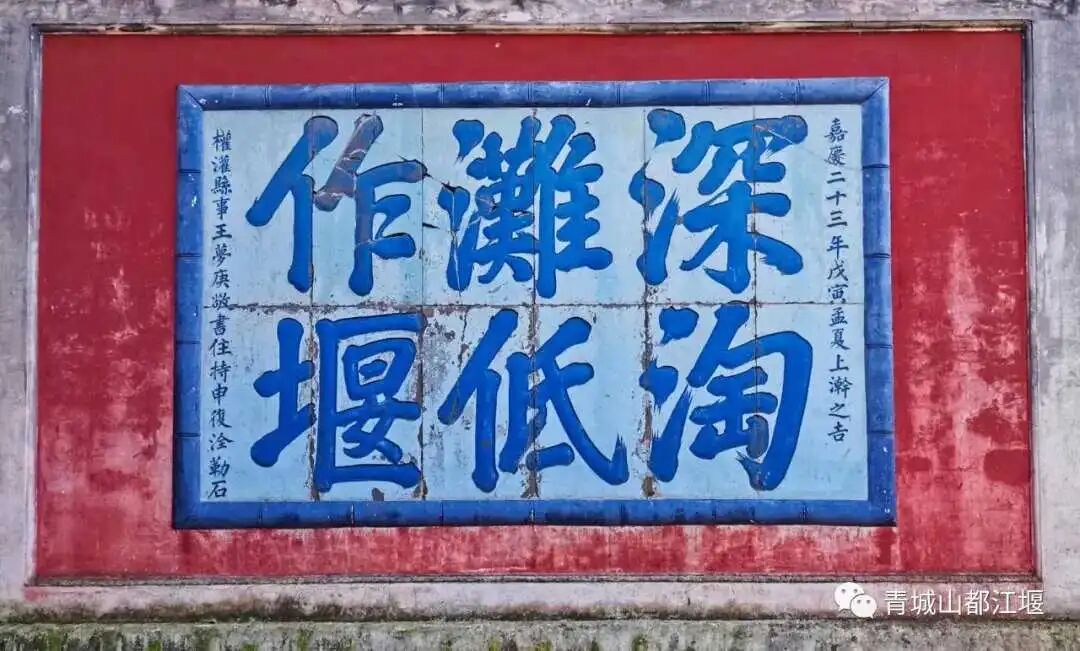 嘉慶二十三年戊寅孟夏上澣之吉
深淘
灘低
作堰
權灌縣事王夢庚敬書住持申復淦勒石
青城山都江堰